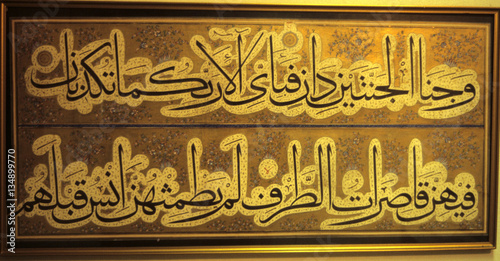 وجنا الجنتين دان فبأي آلاء ربكما تكذبان
فيهن قاصرات الطرف لم يطمثهن انس قبلهم
134899770